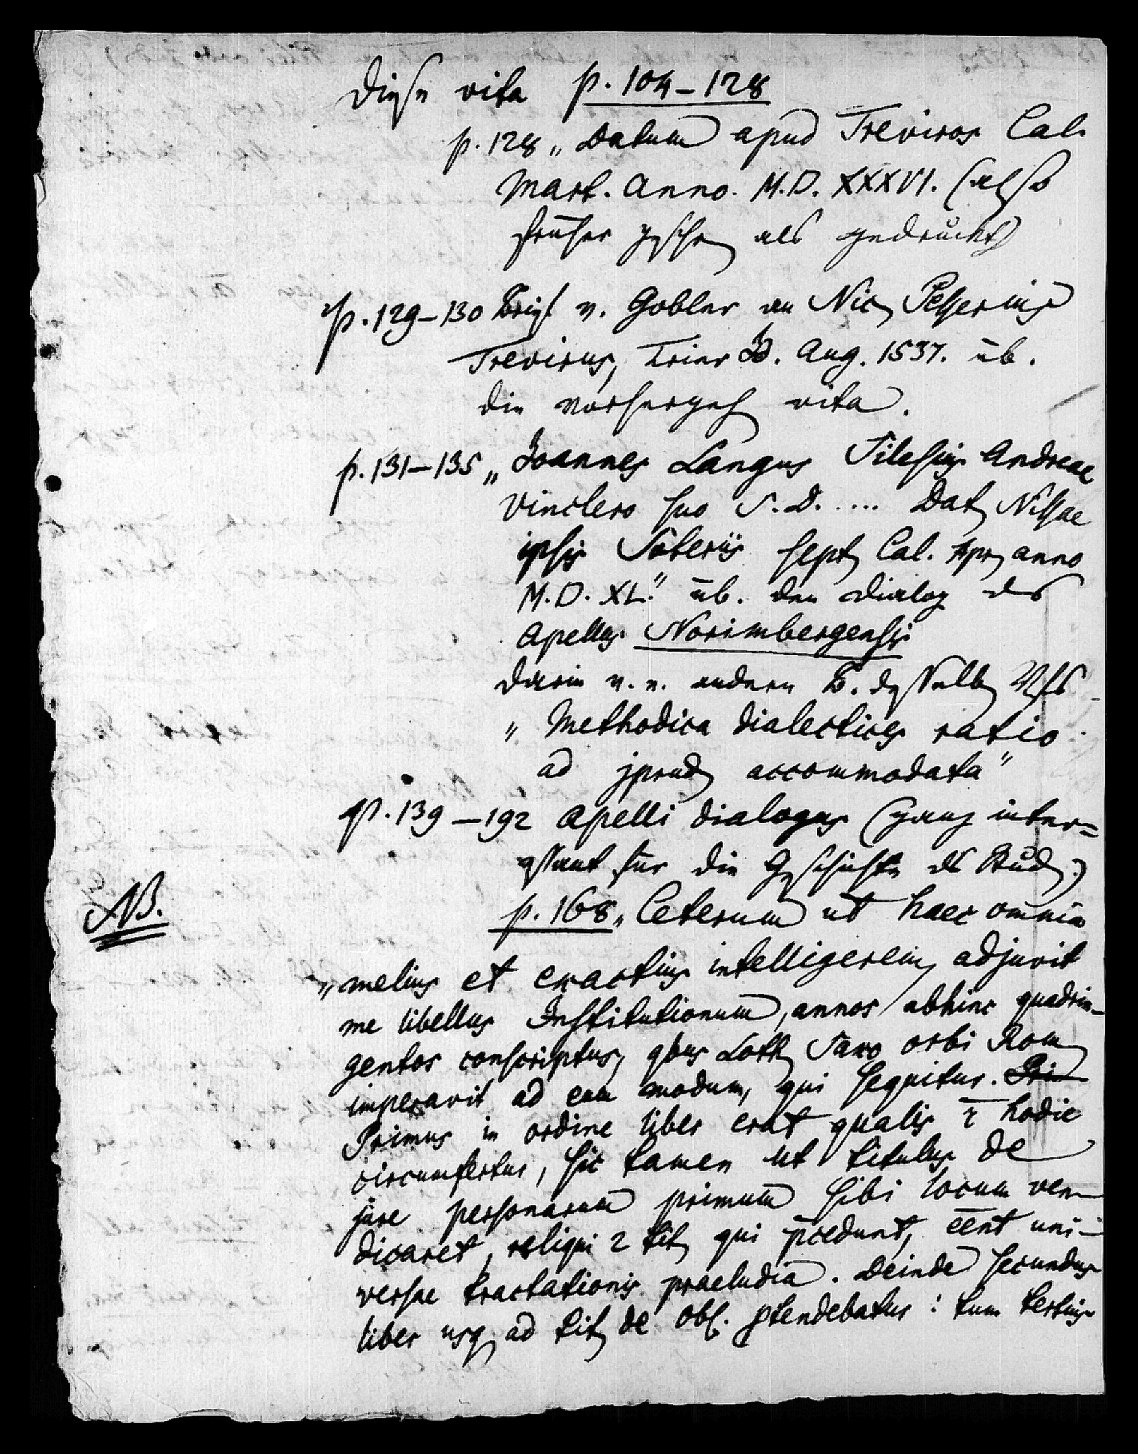 Diese vita p. 104–128
p. 128 „Datum apud Treviros Cal.
Mart. Anno. M.D. XXXVI. (also
früher geschr. als gedruckt)
p. 129–130 Brief v. Gobler an Nic.
Trevirus, Trier Aug. 1537. üb.
die vorhergeh. vita.
p. 131–135 „Joannes Langus Silesius Andreae
Vinclero suo S.D. .... Dat. Nissae
ipsis Soteriis sept. Cal. Apr. anno
M.D. XL." üb. den dialog des
Apellus Norimbergensis
darin v. e. andern B. desselb. Vfs
„Methodica dialectices ratio
ad jprud. accommodata"
p. 139–192 Apelli dialogus (ganz inter=
essant für die Geschichte des Stud.)
NB.
p. 168 „Ceterum ut haec omnia
„melius et exactius intelligerem, adjuvit
me libellus Institutionum, annos abhinc quadrin-
gentos conscriptus, qbus Loth. Saxo orbi Rom.
imperavit ad eum modum, qui sequitur. Pri
Primus in ordine liber erat qualis ē hodie
circumfertur, sic tamen ut titulus de
jure personarum primum sibi locum ven-
dicaret, reliqui 2 tit. qui pcedunt, eēnt uni-
versae tractationis praeludia. Deinde secundus
liber usq. ad tit. de Obl. ptendebatur: tum tertius